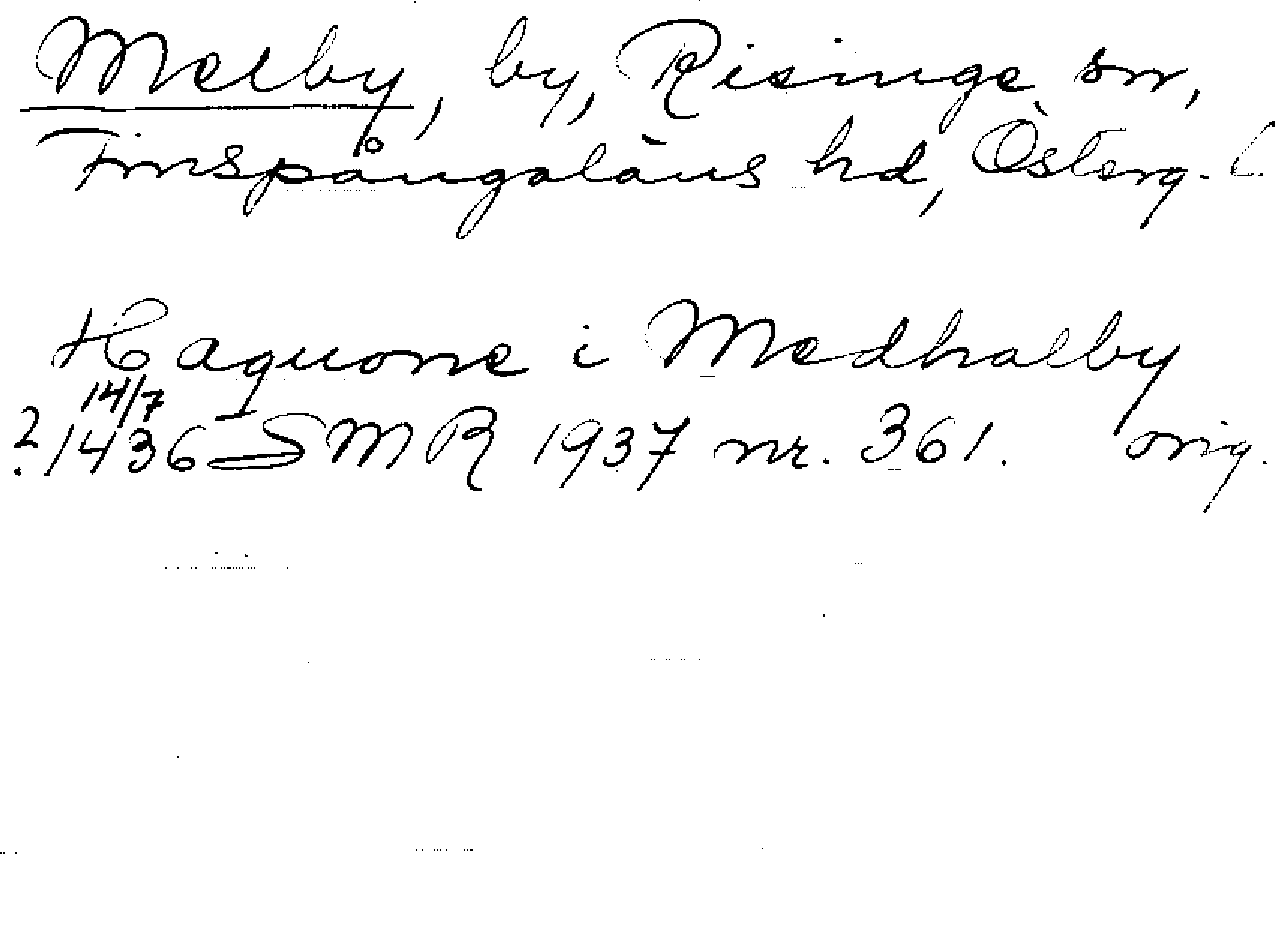 Melby, by, Risinge sn,
Finspångaläns hd, Österg. l.
Haquone i Medhalby
14/7
? 1436 SMR 1937 nr. 361. orig.